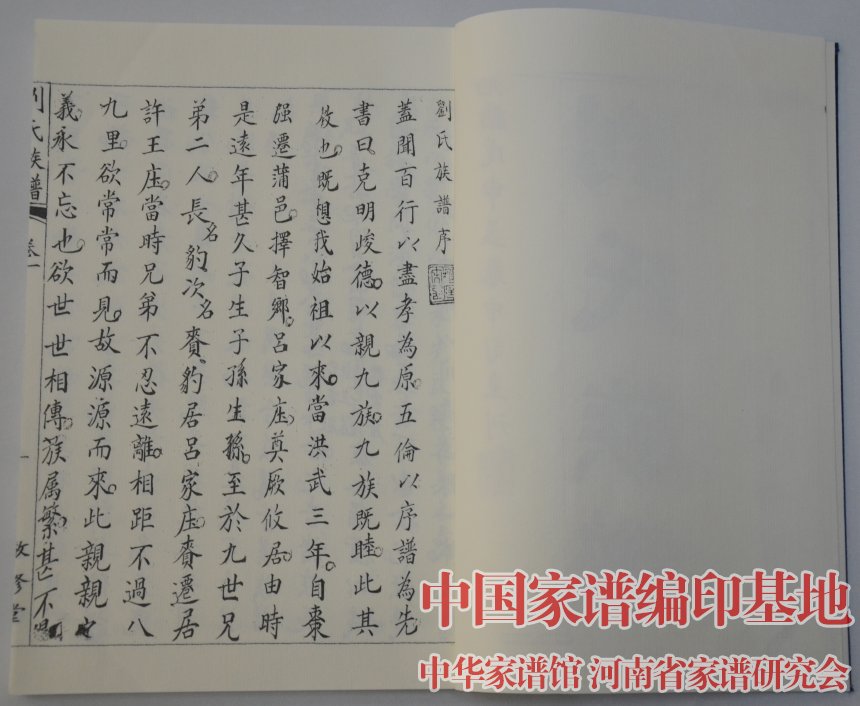 劉氏族譜序
蓋聞百行以盡孝為原。五倫以序譜為先
書曰克明峻德。以親九族。九族既睦。此其
效也。既想我始祖以來。當洪武三年。自棗
强遷蒲邑。擇智鄉。呂家庄。奠厥攸居。由時
是遠年甚久子生子孫生孫。至於九世兄
弟二人。長名豹次名賚、豹居呂家庄。賚遷居
許王庄。當時兄弟不忍遠離。相距不過八
九里。欲常常而見。故源源而來。此親親之
義永不忘也。欲世世相傳。族属繁甚。不
劉氏族譜
卷一
一
敦修堂
中国家谱编印基地
中华家谱馆 河南省家谱研究会